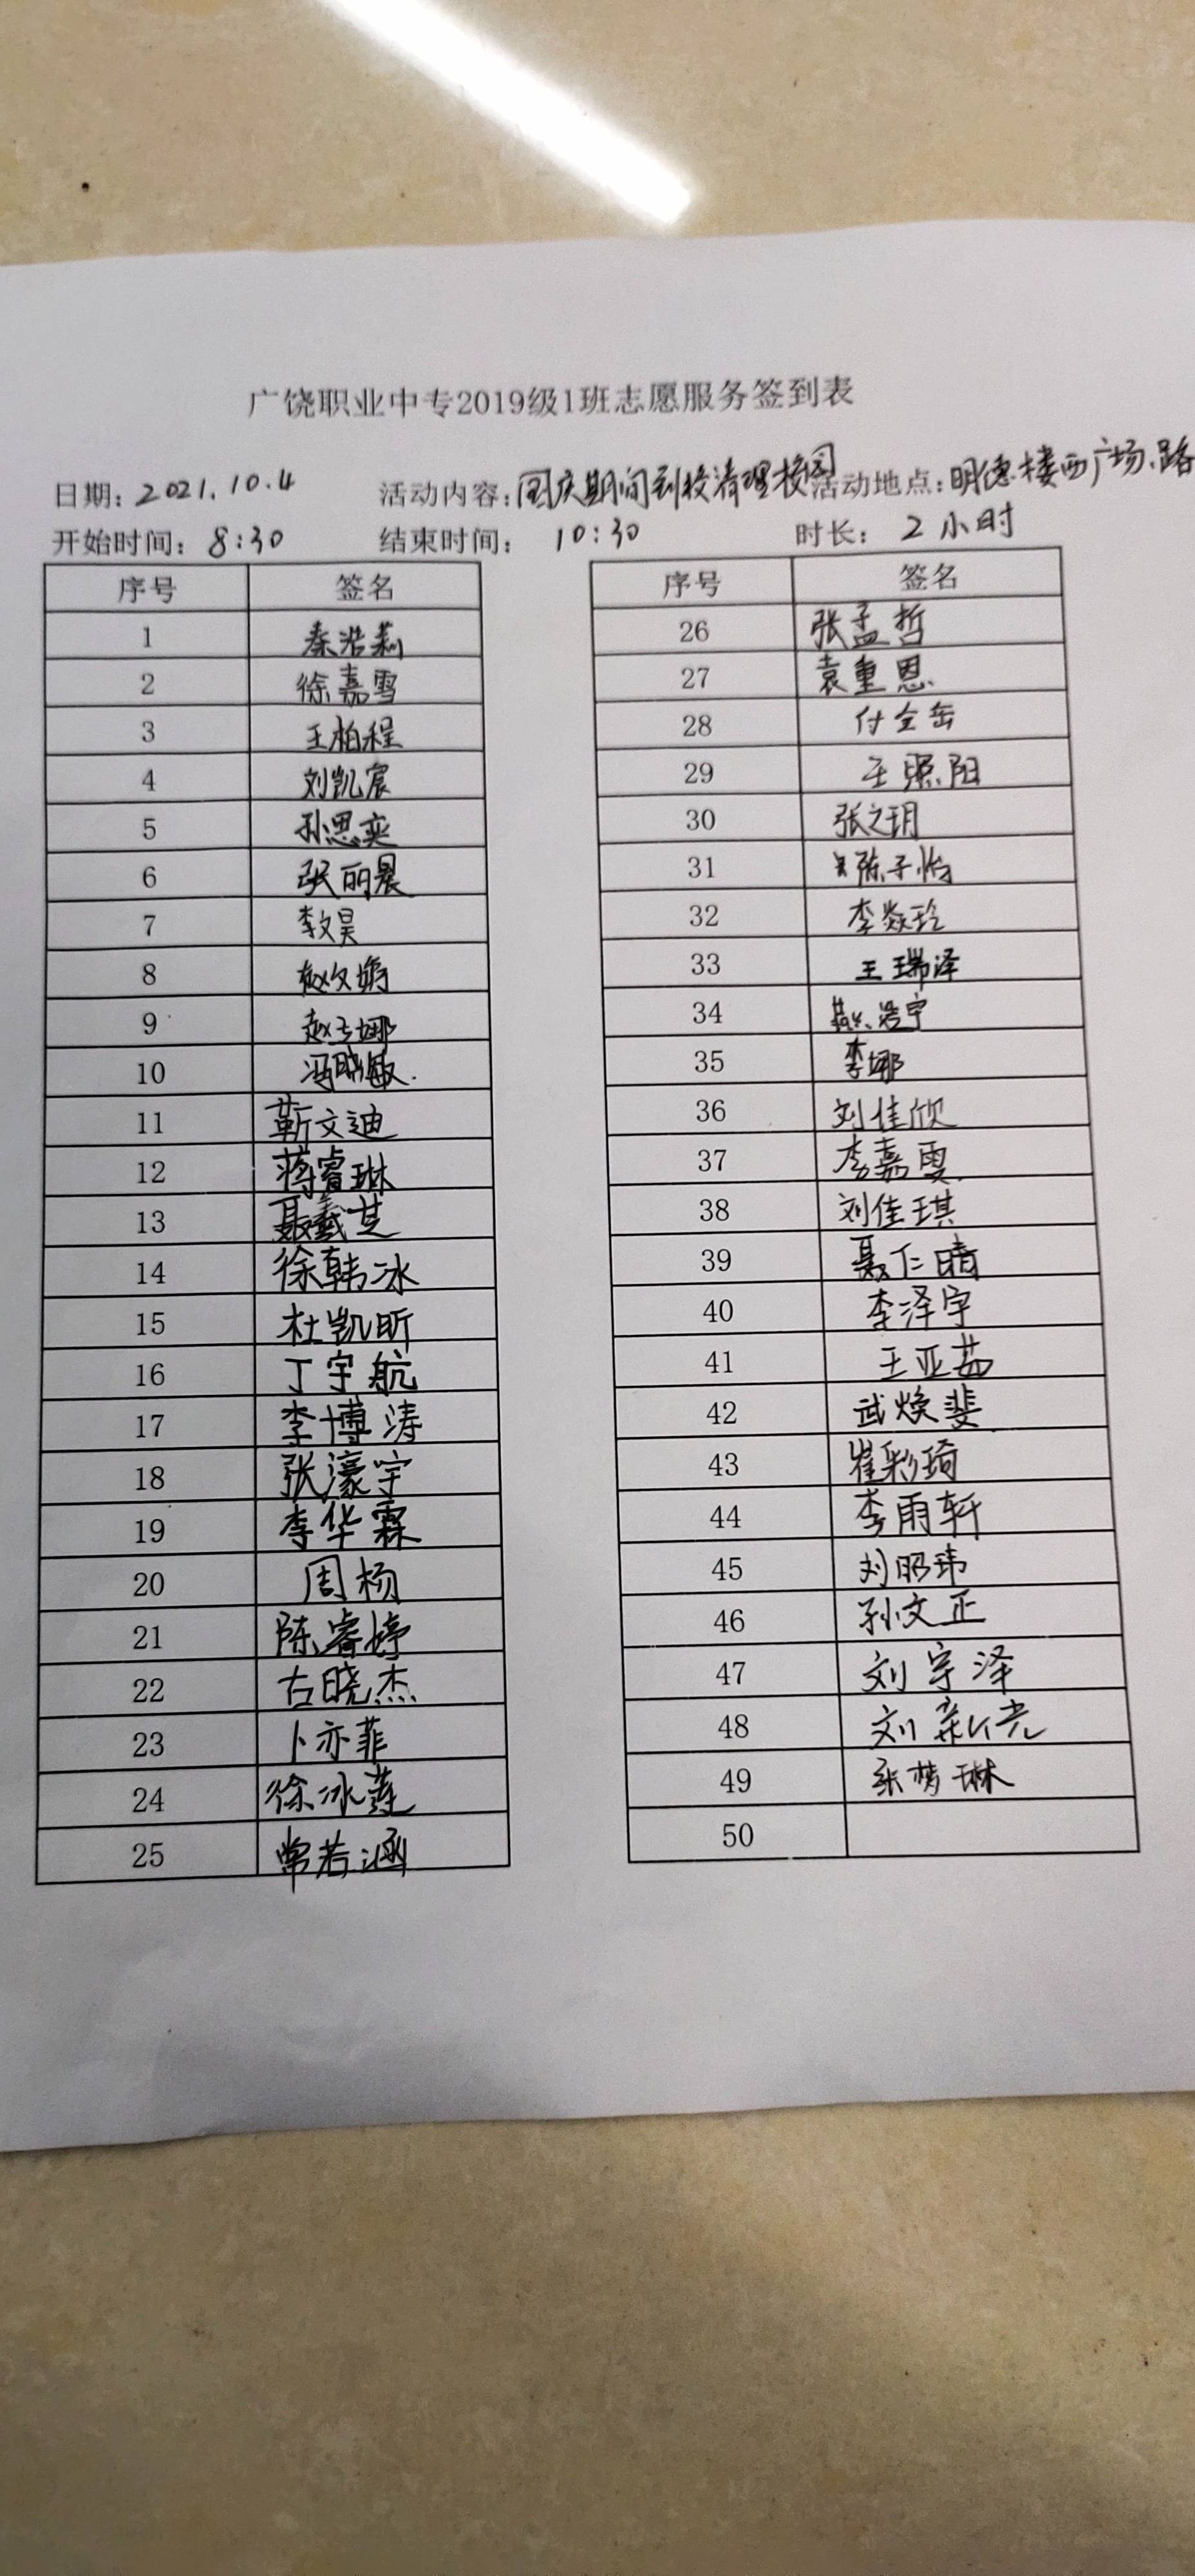 广饶职业中专2019级1班志愿服务签到表
日期：2021.10.4 活动内容：国庆期间到校清理校园 活动地点：明德楼西广场、路
开始时间：8:30 结束时间：10:30 时长：2小时
序号 签名
1 秦浩莉
2 徐嘉雪
3 王柏程
4 刘凯宸
5 孙思奕
6 张丽晨
7 李文昊
8 赵文娟
9 赵子娜
10 冯晓敏
11 靳文迪
12 蒋睿琳
13 聂羲芝
14 徐韩冰
15 杜凯昕
16 丁宇航
17 李博涛
18 张濠宇
19 李华霖
20 周杨
21 陈睿婷
22 古晓杰
23 卜亦菲
24 徐冰莲
25 常若涵
序号 签名
26 张孟哲
27 袁重恩
28 付全岳
29 王照阳
30 张之玥
31 陈子怡
32 李焱玲
33 王瑞泽
34 燕浩宇
35 李娜
36 刘佳欣
37 李嘉雯
38 刘佳琪
39 聂仁晴
40 李泽宇
41 王亚茹
42 武焕斐
43 崔彩琦
44 李雨轩
45 刘昭玮
46 孙文正
47 刘宇泽
48 刘新光
49 张梦琳
50